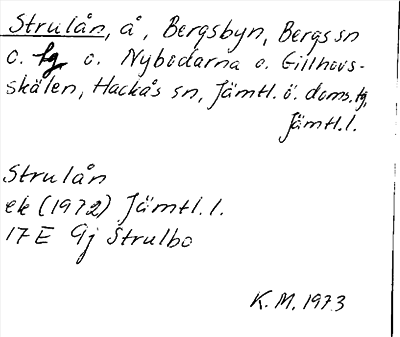 Strulån, å, Bergsbyn, Bergs sn
o. tg o. Nybodarna o. Gillhovs-
skälen, Hackås sn, Jämtl. ö. doms.tg,
Jämtl.l.
Strulån
ek (1972) Jämtl.l.
17 E 9j Strulbo
K.M. 1973